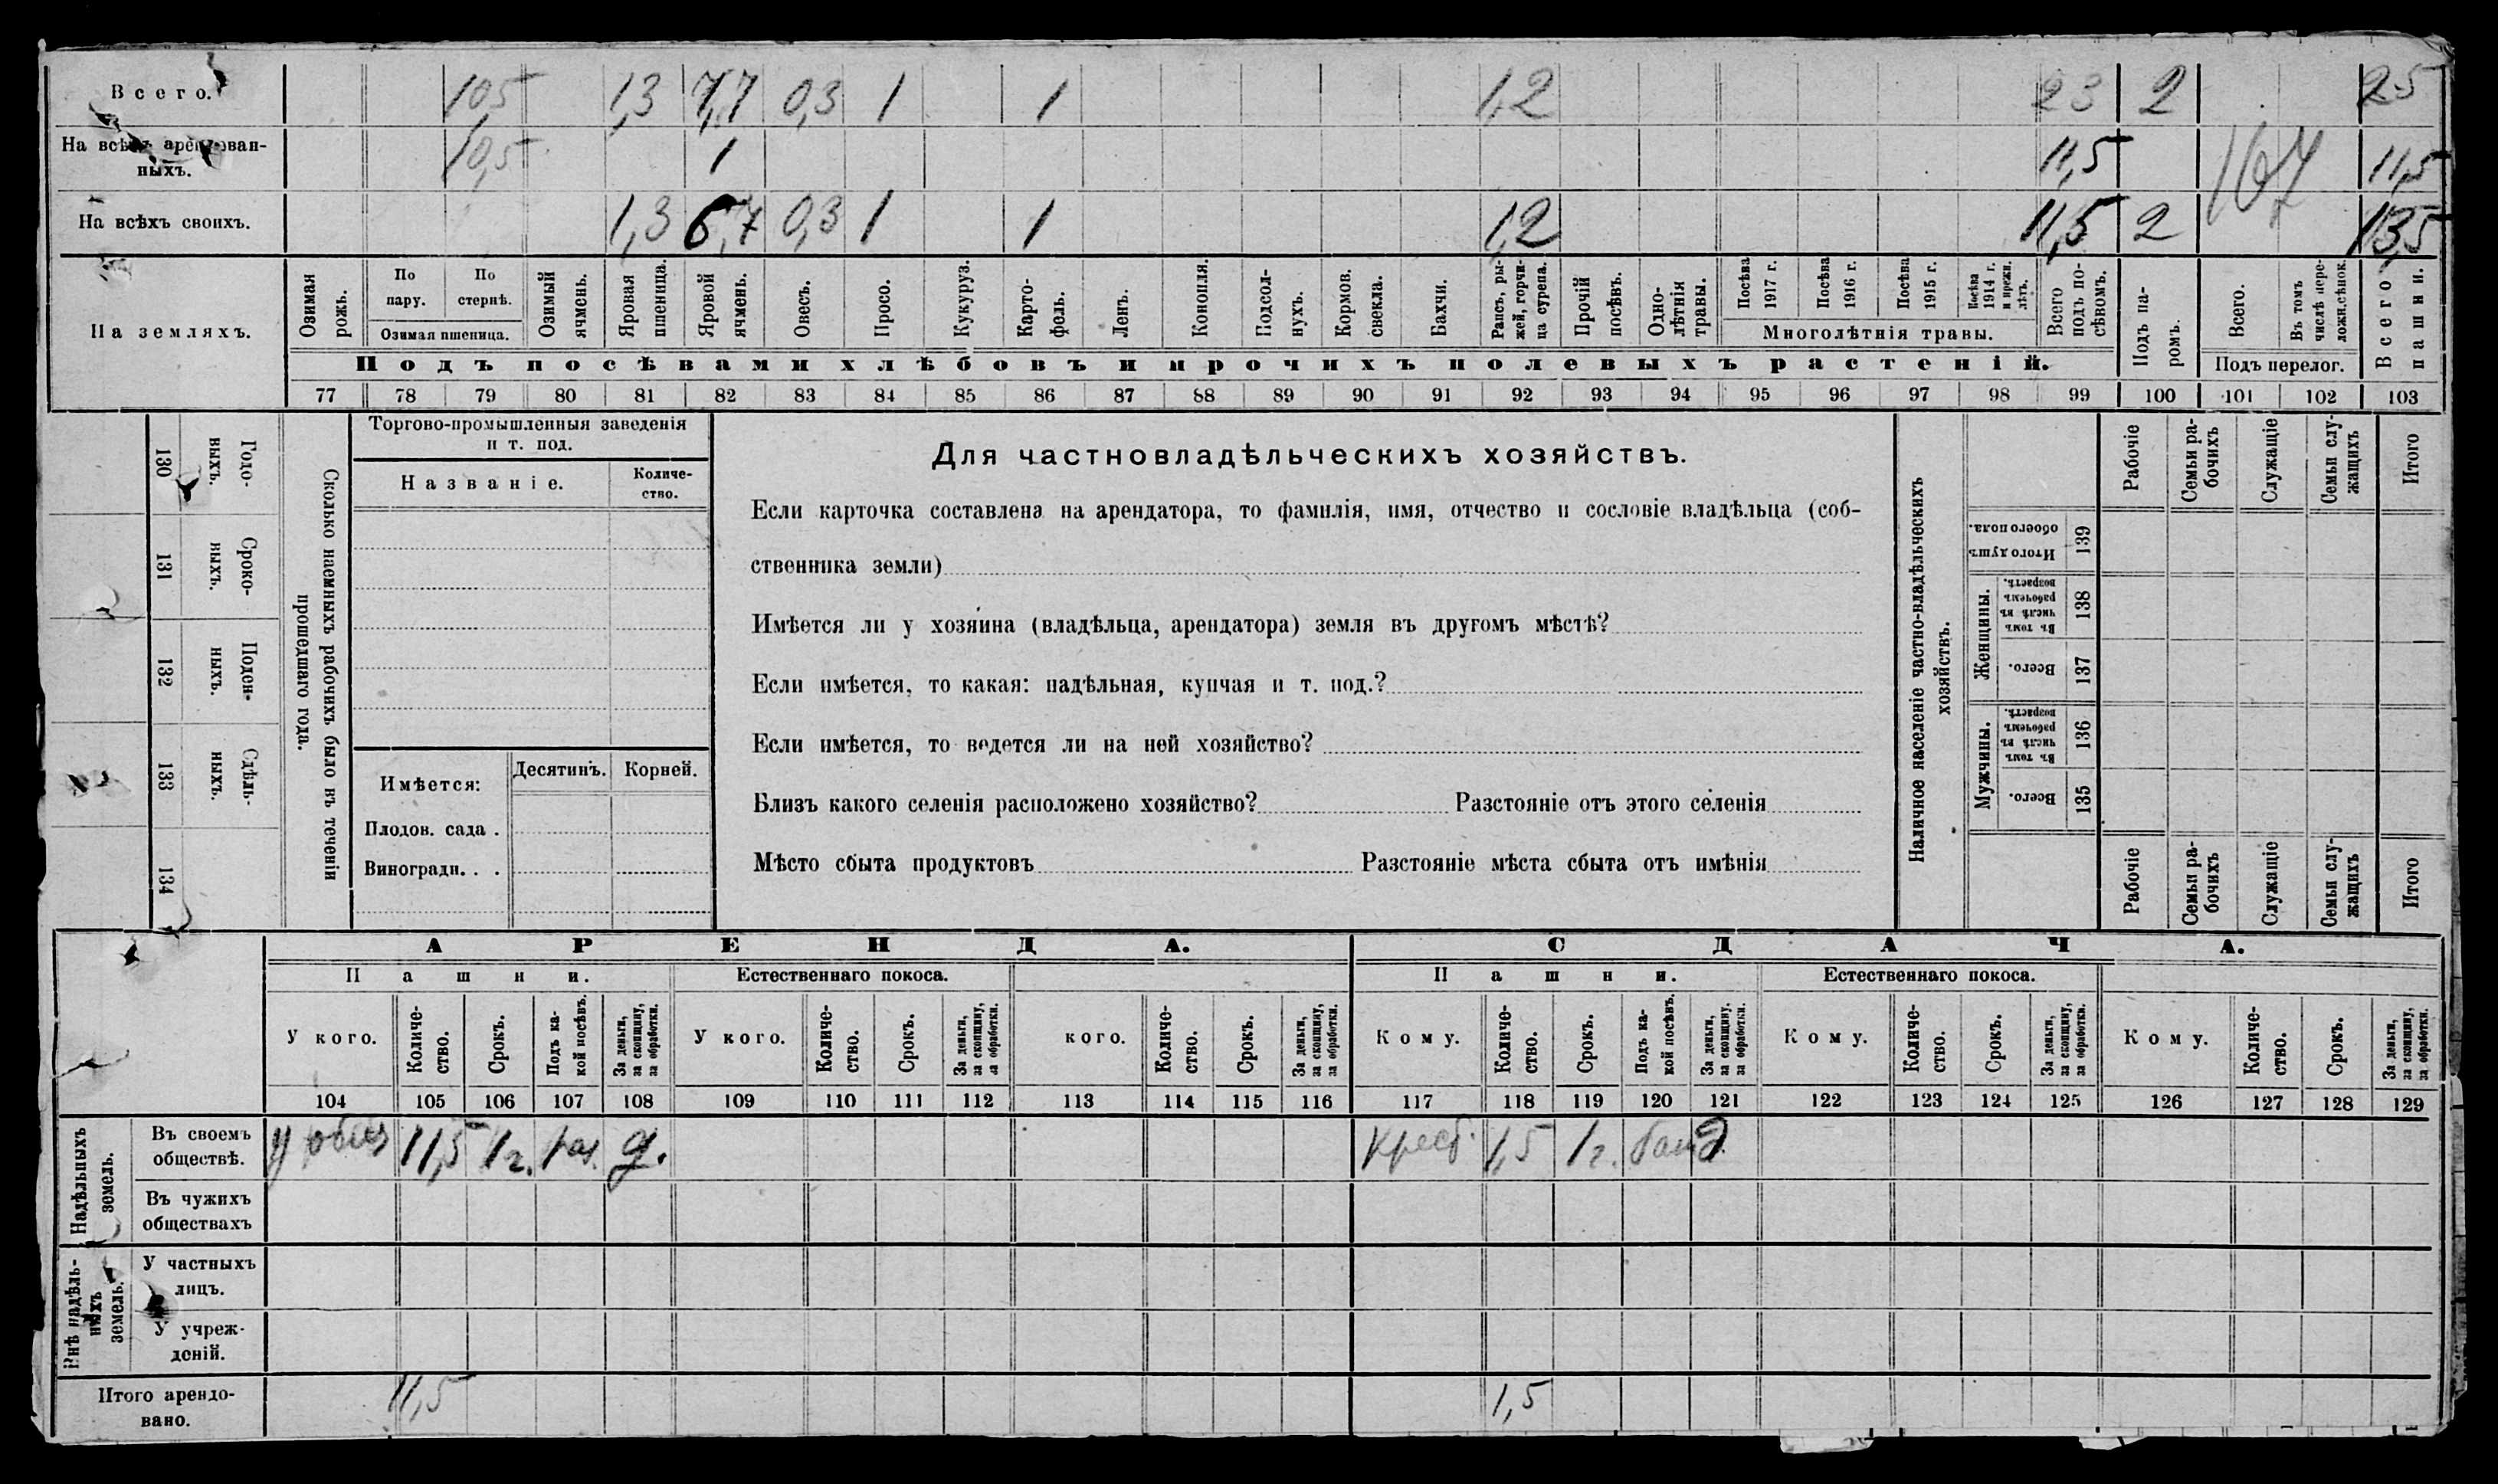 Всего. 10,5 1,3 7,7 0,3 1 1 1,2 23 2 25
На всѣхъ арендован-
ныхъ. 10,5 1 11,5 167 11,5
На всѣхъ своихъ. 1,3 6,7 0,3 1 1 1,2 11,5 2 13,5
На земляхъ.
Озимая рожь.
По пару.
По стернѣ.
Озимая пшеница.
Озимый ячмень.
Яровая пшеница.
Яровой ячмень.
Овесъ.
Просо.
Кукуруз.
Карто-
фель.
Ленъ.
Конопля.
Подсол-
нухъ.
Кормов. свекла.
Бахчи.
Рапсъ, ры-
жей, горчи-
ца сурепа.
Прочій посѣвъ.
Одно-
лѣтнія травы.
Посѣва 1917 г.
Посѣва 1916 г.
Посѣва 1915 г.
Посѣва 1914 г. и прежн. лѣтъ.
Многолѣтнія травы.
Всего подъ по-
сѣвомъ.
Подъ па-
ромъ.
Всего.
Въ томъ числѣ пере-
ложн.сѣнок.
Подъ перелог.
Всего пашни.
Подъ посѣвами хлѣбовъ и прочихъ полевыхъ растеній.
77 78 79 80 81 82 83 84 85 86 87 88 89 90 91 92 93 94 95 96 97 98 99 100 101 102 103
Сколько наемныхъ рабочихъ было въ теченіи
прошедшаго года.
Годо-
выхъ.
130
Сроко-
ныхъ.
131
Поден-
ныхъ.
132
Сдѣль-
ныхъ.
133
134
Торгово-промышленныя заведенія
и т. под.
Названіе.
Количе-
ство.
Имѣется:
Десятинъ. Корней.
Плодов. сада .
Виноградн. . .
Для частновладѣльческихъ хозяйствъ.
Если карточка составлена на арендатора, то фамилія, имя, отчество и сословіе владѣльца (соб-
ственника земли)
Имѣется ли у хозяина (владѣльца, арендатора) земля въ другомъ мѣстѣ?
Если имѣется, то какая: надѣльная, купчая и т. под.?
Если имѣется, то ведется ли на ней хозяйство?
Близъ какого селенія расположено хозяйство? Разстояніе отъ этого селенія
Мѣсто сбыта продуктовъ Разстояніе мѣста сбыта отъ имѣнія
Наличное населеніе частно-владѣльческихъ
хозяйствъ.
Рабочіе
Семьи ра-
бочихъ
Служащіе
Семьи слу-
жащихъ
Итого
Итого душъ
обоего пола.
139
Женщины.
Въ томъ числѣ въ рабочемъ возрастѣ.
138
Всего.
137
Мужчины.
Въ томъ числѣ въ рабочемъ возрастѣ.
136
Всего.
135
Рабочіе
Семьи ра-
бочихъ
Служащіе
Семьи слу-
жащихъ
Итого
АРЕНДА. СДАЧА.
Пашни. Естественнаго покоса. Пашни. Естественнаго покоса.
У кого.
Количе-
ство.
Срокъ.
Подъ ка-
кой посѣвъ.
За деньги,
за скопщину,
за обработки.
У кого.
Количе-
ство.
Срокъ.
За деньги,
за скопщину,
за обработки.
кого.
Количе-
ство.
Срокъ.
За деньги,
за скопщину,
за обработки.
Кому.
Количе-
ство.
Срокъ.
Подъ ка-
кой посѣвъ.
За деньги,
за скопщину,
за обработки.
Кому.
Количе-
ство.
Срокъ.
За деньги,
за скопщину,
за обработки.
Кому.
Количе-
ство.
Срокъ.
За деньги,
за скопщину,
за обработки.
104 105 106 107 108 109 110 111 112 113 114 115 116 117 118 119 120 121 122 123 124 125 126 127 128 129
Надѣльныхъ
земель.
Въ своемъ
обществѣ. 11,5 1 г. д. крест. 1,5 1 г. д
Въ чужихъ
обществахъ
Внѣ надѣль-
ныхъ
земель.
У частныхъ
лицъ.
У учреж-
деній.
Итого арендо-
вано. 11,5 1,5